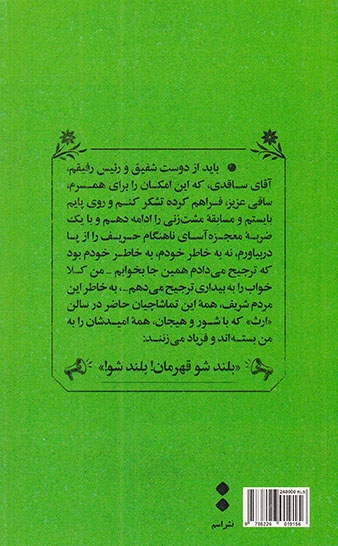 باید از دوست شفیق و رئیس رفیقم،
آقای ساقدی، که این امکان را برای همسرم،
ساقی عزیز، فراهم کرده تشکر کنم و روی پایم
بایستم و مسابقهٔ مشت‌زنی را ادامه دهم و با یک
ضربهٔ معجزه‌آسای ناهنگام حریف را از پا
دربیاورم، نه به خاطر خودم، به خاطر خودم بود
که ترجیح می‌دادم همین جا بخوابم ـ من کلا
خواب را به بیداری ترجیح می‌دهم ـ، به خاطر این
مردم شریف، همهٔ این تماشاچیان حاضر در سالن
«ارث» که با شور و هیجان، همهٔ امیدشان را به
من بسته‌اند و فریاد می‌زنند:
«بلند شو قهرمان! بلند شو!»
نشر اسم
240000 RLS
9 786226 010156